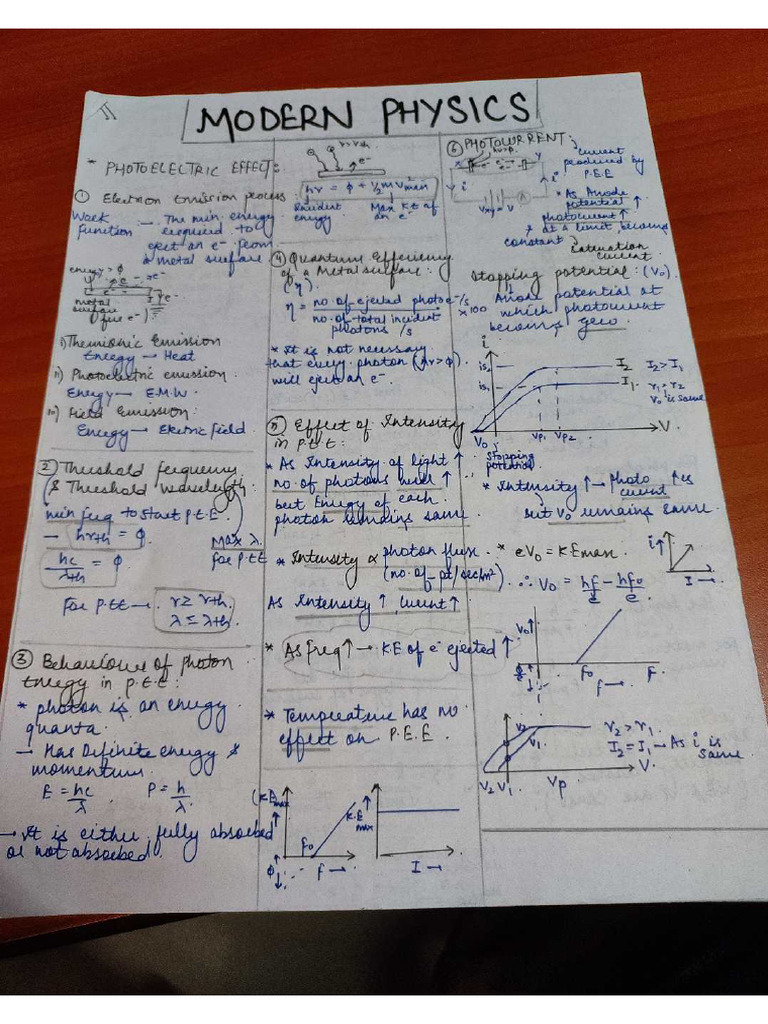 MODERN PHYSICS
* PHOTOELECTRIC EFFECT:
① Electron Emission process
Work function → The min. energy
required to
eject an e⁻ from
a metal surface.
energy > φ
e⁻
metal
surface
(free e⁻)
i) Thermionic Emission
Energy → Heat
ii) Photoelectric emission.
Energy → E.M.W.
iii) Field Emission:
Energy → Electric field
② Threshold frequency
& Threshold wavelength:
min freq to start P.E.E.
→ hνth = φ.
hc/λth = φ
Max λ
for P.E.E
For P.E.E → ν ≥ νth.
λ ≤ λth
③ Behaviour of photon
Energy in P.E.E:
* photon is an energy
quanta.
→ Has Definite energy &
momentum.
E = hc/λ P = h/λ
→ It is either fully absorbed
or not absorbed.
ν > νth.
e⁻
hν = φ + ½mv²max
Incident
energy
Max K.E of
an e⁻
④ Quantum Efficiency
of a Metal surface:
(η).
η = no. of ejected photo e⁻/s / no. of total incident photons /s × 100
* It is not necessary
that every photon (hν > φ).
will eject an e⁻.
⑤ Effect of Intensity
in P.E.E:
* As Intensity of light ↑
no. of photons ↑
but Energy of each
photon remains same.
* Intensity ∝ photon flux
(no. of pt/sec/m²)
As Intensity ↑, current ↑
* As freq ↑ → K.E of e⁻ ejected ↑
* Temperature has no
effect on P.E.E.
(K.E)max
f₀
φ
f →
K.E max
I →
⑥ PHOTOCURRENT:
current
produced by
P.E.E
x
y
e⁻
i
A
Vxy = V
* As Anode
potential ↑
photocurrent ↑
* at a limit becomes
constant
saturation
current.
Stopping potential: (V₀).
Anode potential at
which photocurrent
becomes zero
i
is₂
is₁
I₂
I₁
I₂ > I₁
ν₁ = ν₂
V₀ is same
V₀
Vp₁ Vp₂
V.
stopping
potential
* Intensity ↑ → photo current ↑es
but V₀ remains same.
* eV₀ = KEmax.
i ↑
I →
∴ V₀ = hf/e − hf₀/e
V₀
f₀
f
f →
ν₂
ν₁
ν₂ > ν₁.
I₂ = I₁ → As i is
same.
V₂ V₁
Vp
V.